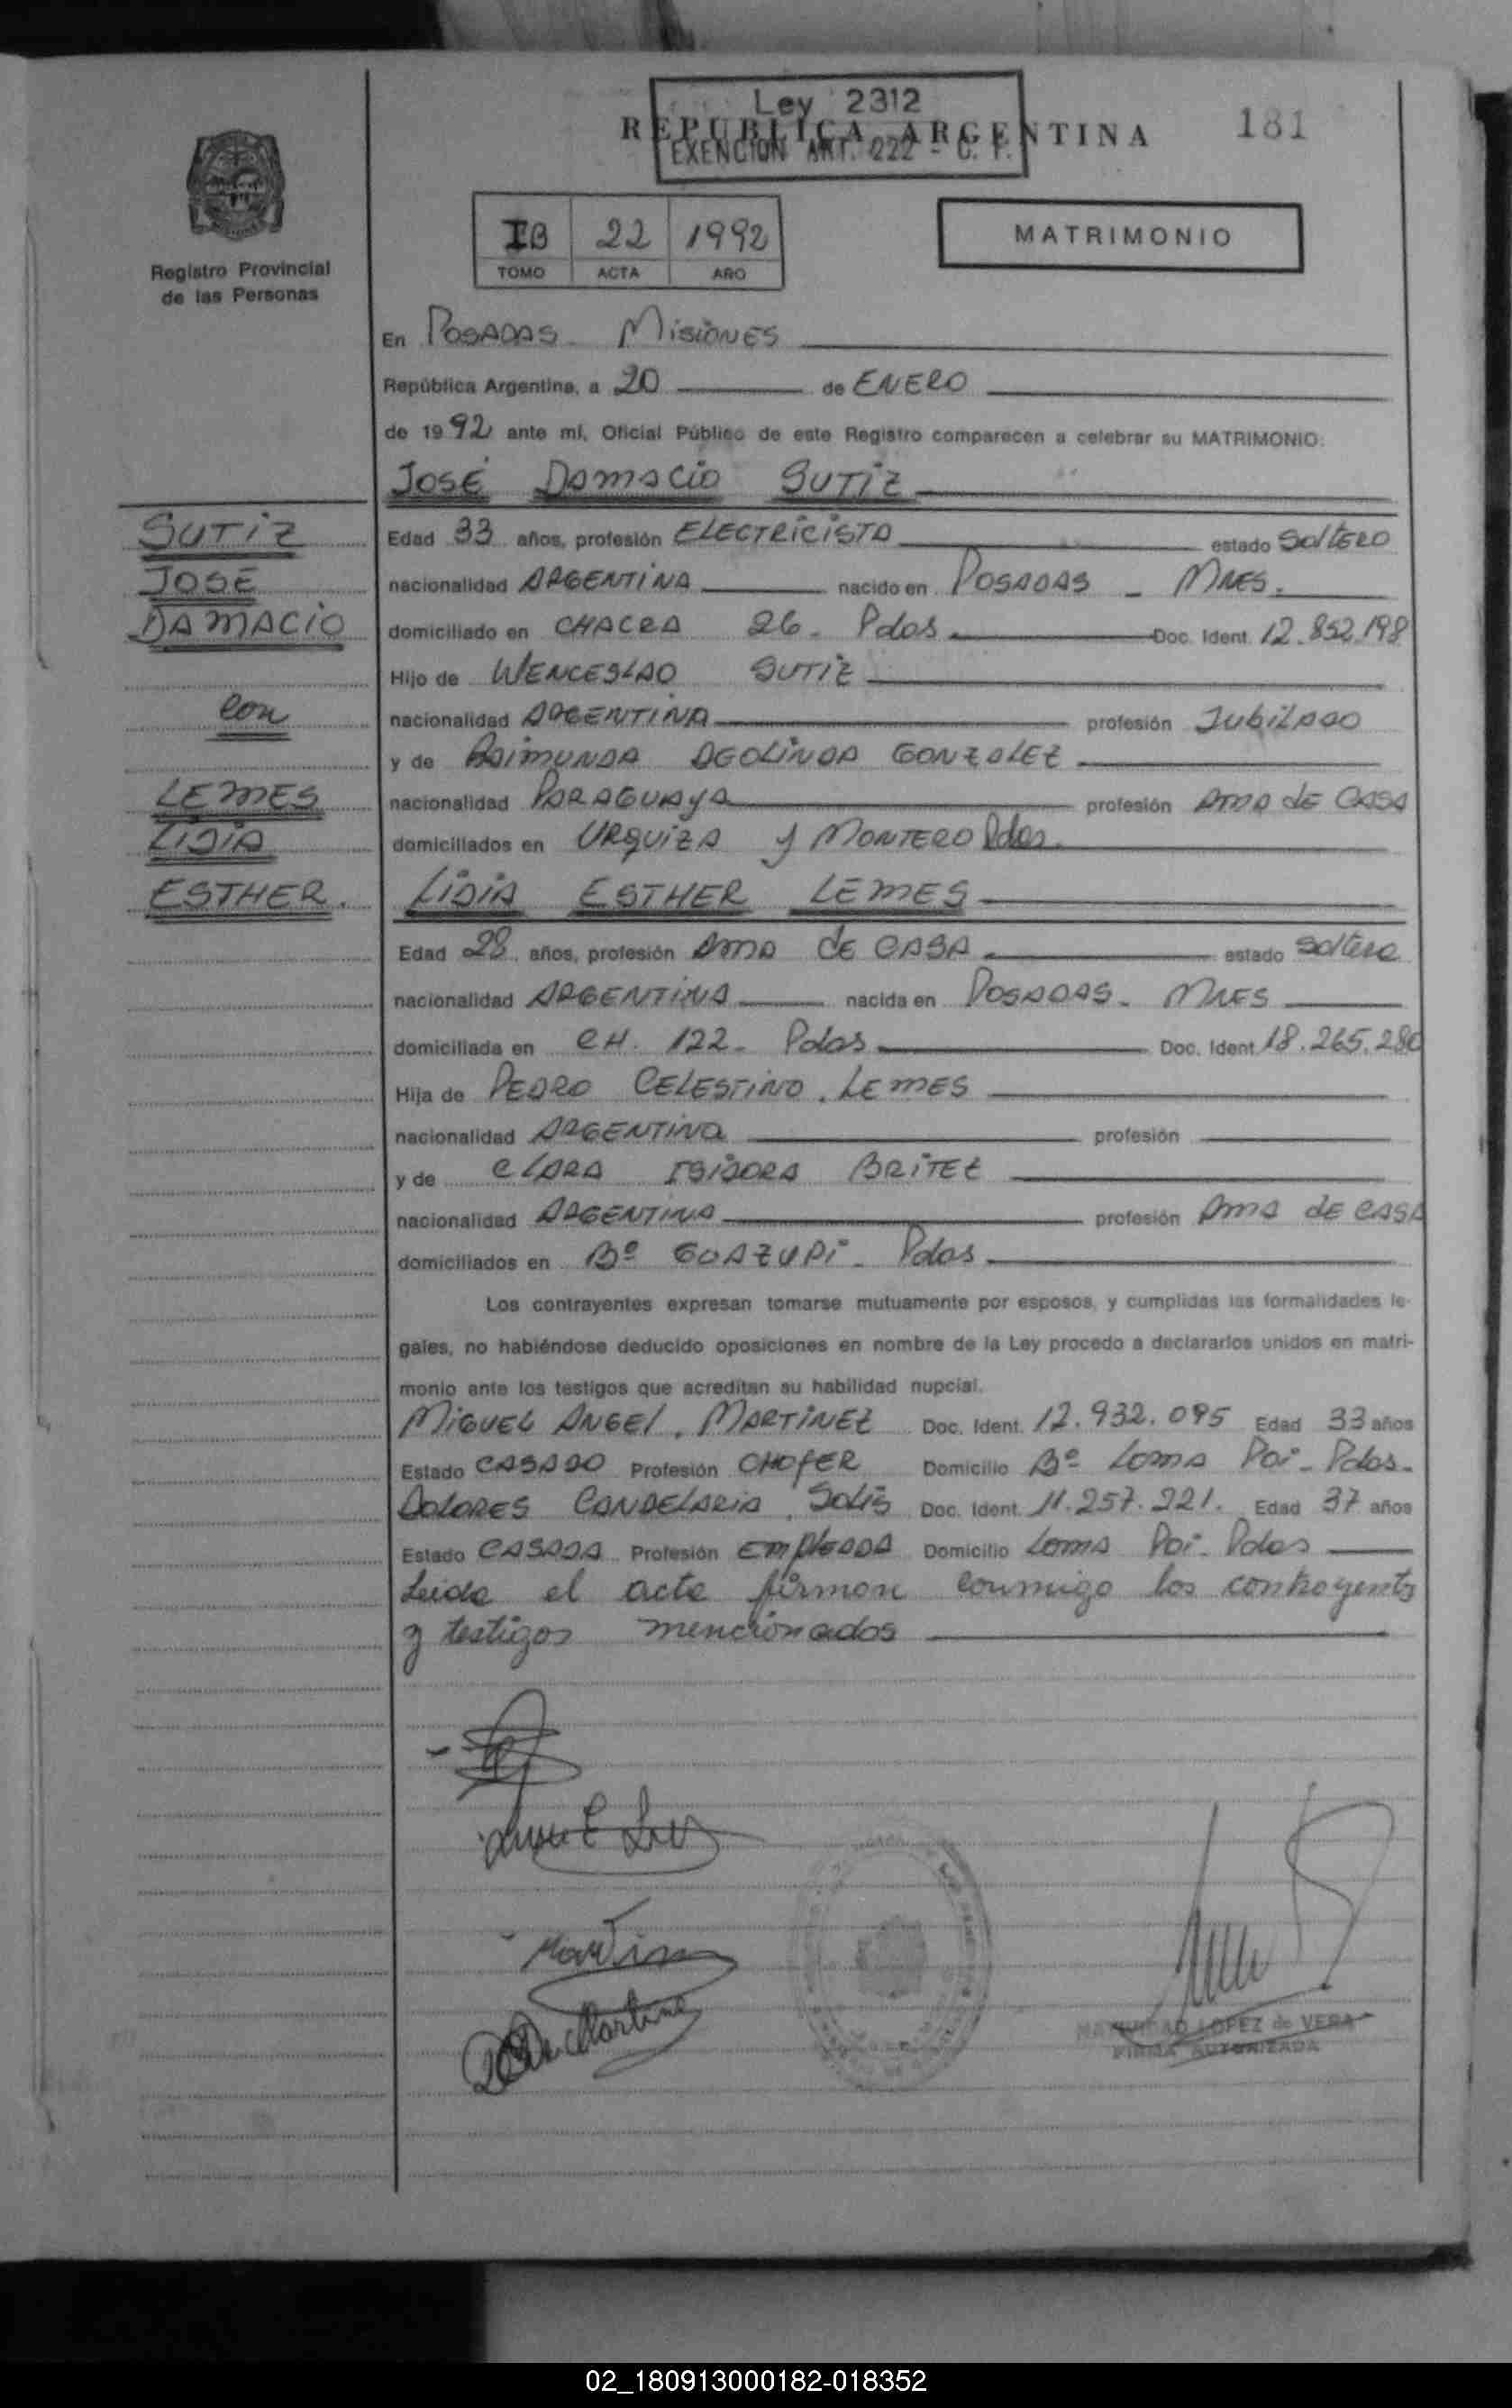 Ley 2312
REPUBLICA ARGENTINA
EXENCION ART. 222 - C. F.
181
IB 22 1992
TOMO ACTA AÑO
MATRIMONIO
Registro Provincial
de las Personas
En POSADAS - MISIONES
República Argentina, a 20 de ENERO
de 1992 ante mí, Oficial Público de este Registro comparecen a celebrar su MATRIMONIO:
JOSÉ DAMACIO SUTIZ
SUTIZ
JOSE
DAMACIO
con
LEMES
LIDIA
ESTHER.
Edad 33 años, profesión ELECTRICISTA estado SOLTERO
nacionalidad ARGENTINA nacido en POSADAS - MNES.
domiciliado en CHACRA 26 - Pdas Doc. Ident. 12.852.198
Hijo de WENCESLAO SUTIZ
nacionalidad ARGENTINA profesión JUBILADO
y de RAIMUNDA DEOLINDA GONZALEZ
nacionalidad PARAGUAYA profesión AMA DE CASA
domiciliados en URQUIZA y MONTERO Pdas.
LIDIA ESTHER LEMES
Edad 28 años, profesión AMA DE CASA estado soltera
nacionalidad ARGENTINA nacida en POSADAS - MNES
domiciliada en CH. 122 - Pdas Doc. Ident. 18.265.280
Hija de PEDRO CELESTINO LEMES
nacionalidad ARGENTINA profesión
y de CLARA ISIDORA BRITEZ
nacionalidad ARGENTINA profesión AMA DE CASA
domiciliados en Bº GUAZUPI - Pdas
Los contrayentes expresan tomarse mutuamente por esposos, y cumplidas las formalidades le-
gales, no habiéndose deducido oposiciones en nombre de la Ley procedo a declararlos unidos en matri-
monio ante los testigos que acreditan su habilidad nupcial.
MIGUEL ANGEL MARTINEZ Doc. Ident. 12.932.095 Edad 33 años
Estado CASADO Profesión CHOFER Domicilio Bº LOMA POI - Pdas.
DOLORES CANDELARIA SOLIS Doc. Ident. 11.257.221. Edad 37 años
Estado CASADA Profesión EMPLEADA Domicilio LOMA POI - Pdas
Leida el acta firman conmigo los contrayentes
y testigos mencionados
LOPEZ de VERA
FIRMA AUTORIZADA
02_180913000182-018352